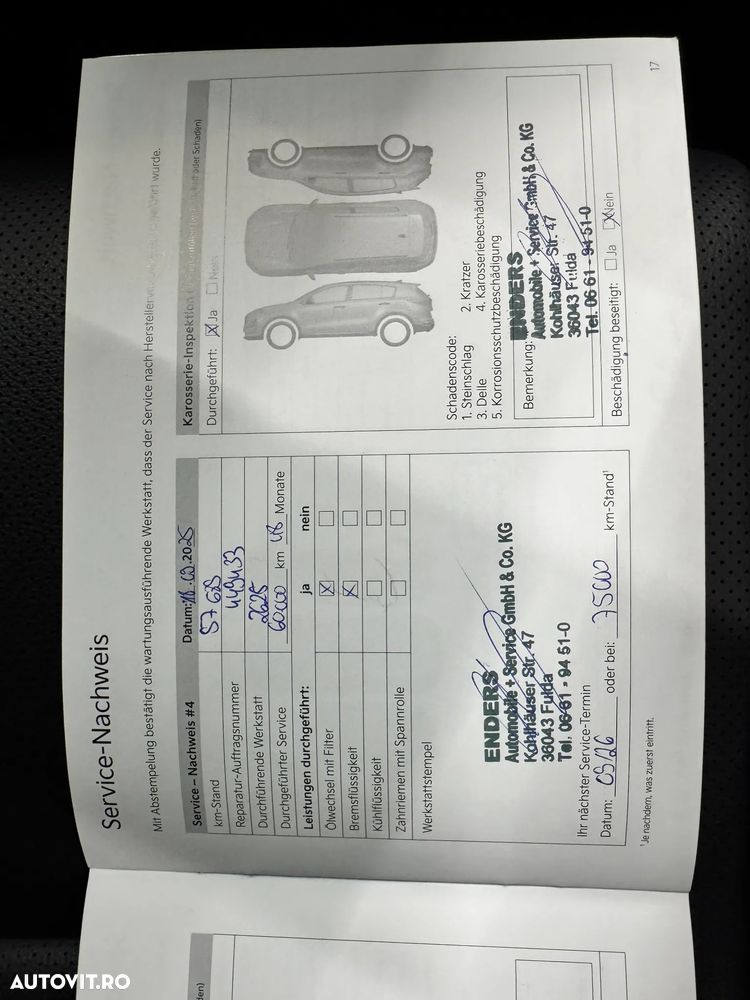 Service-Nachweis
Mit Abstempelung bestätigt die wartungsausführende Werkstatt, dass der Service nach Hersteller wurde.
Service – Nachweis #4 Datum: .2025
km-Stand
Reparatur-Auftragsnummer 449433
Durchführende Werkstatt 2625
Durchgeführter Service 60000 km 48 Monate
Leistungen durchgeführt: ja nein
Ölwechsel mit Filter
Bremsflüssigkeit
Kühlflüssigkeit
Zahnriemen mit Spannrolle
Werkstattstempel
ENDERS
Automobile + Service GmbH & Co. KG
Kohlhäuser Str. 47
36043 Fulda
Tel. 06 61 - 94 51-0
Ihr nächster Service-Termin
Datum: 03/26 oder bei: 75000 km-Stand¹
¹ Je nachdem, was zuerst eintritt.
Karosserie-Inspektion oder Schaden)
Durchgeführt: Ja Nein
Schadenscode:
1. Steinschlag 2. Kratzer
3. Delle 4. Karosseriebeschädigung
5. Korrosionsschutzbeschädigung
Bemerkung:
ENDERS
Automobile + Service GmbH & Co. KG
Kohlhäuser Str. 47
36043 Fulda
Tel. 06 61 - 94 51-0
Beschädigung beseitigt: Ja Nein
17
AUTOVIT.RO